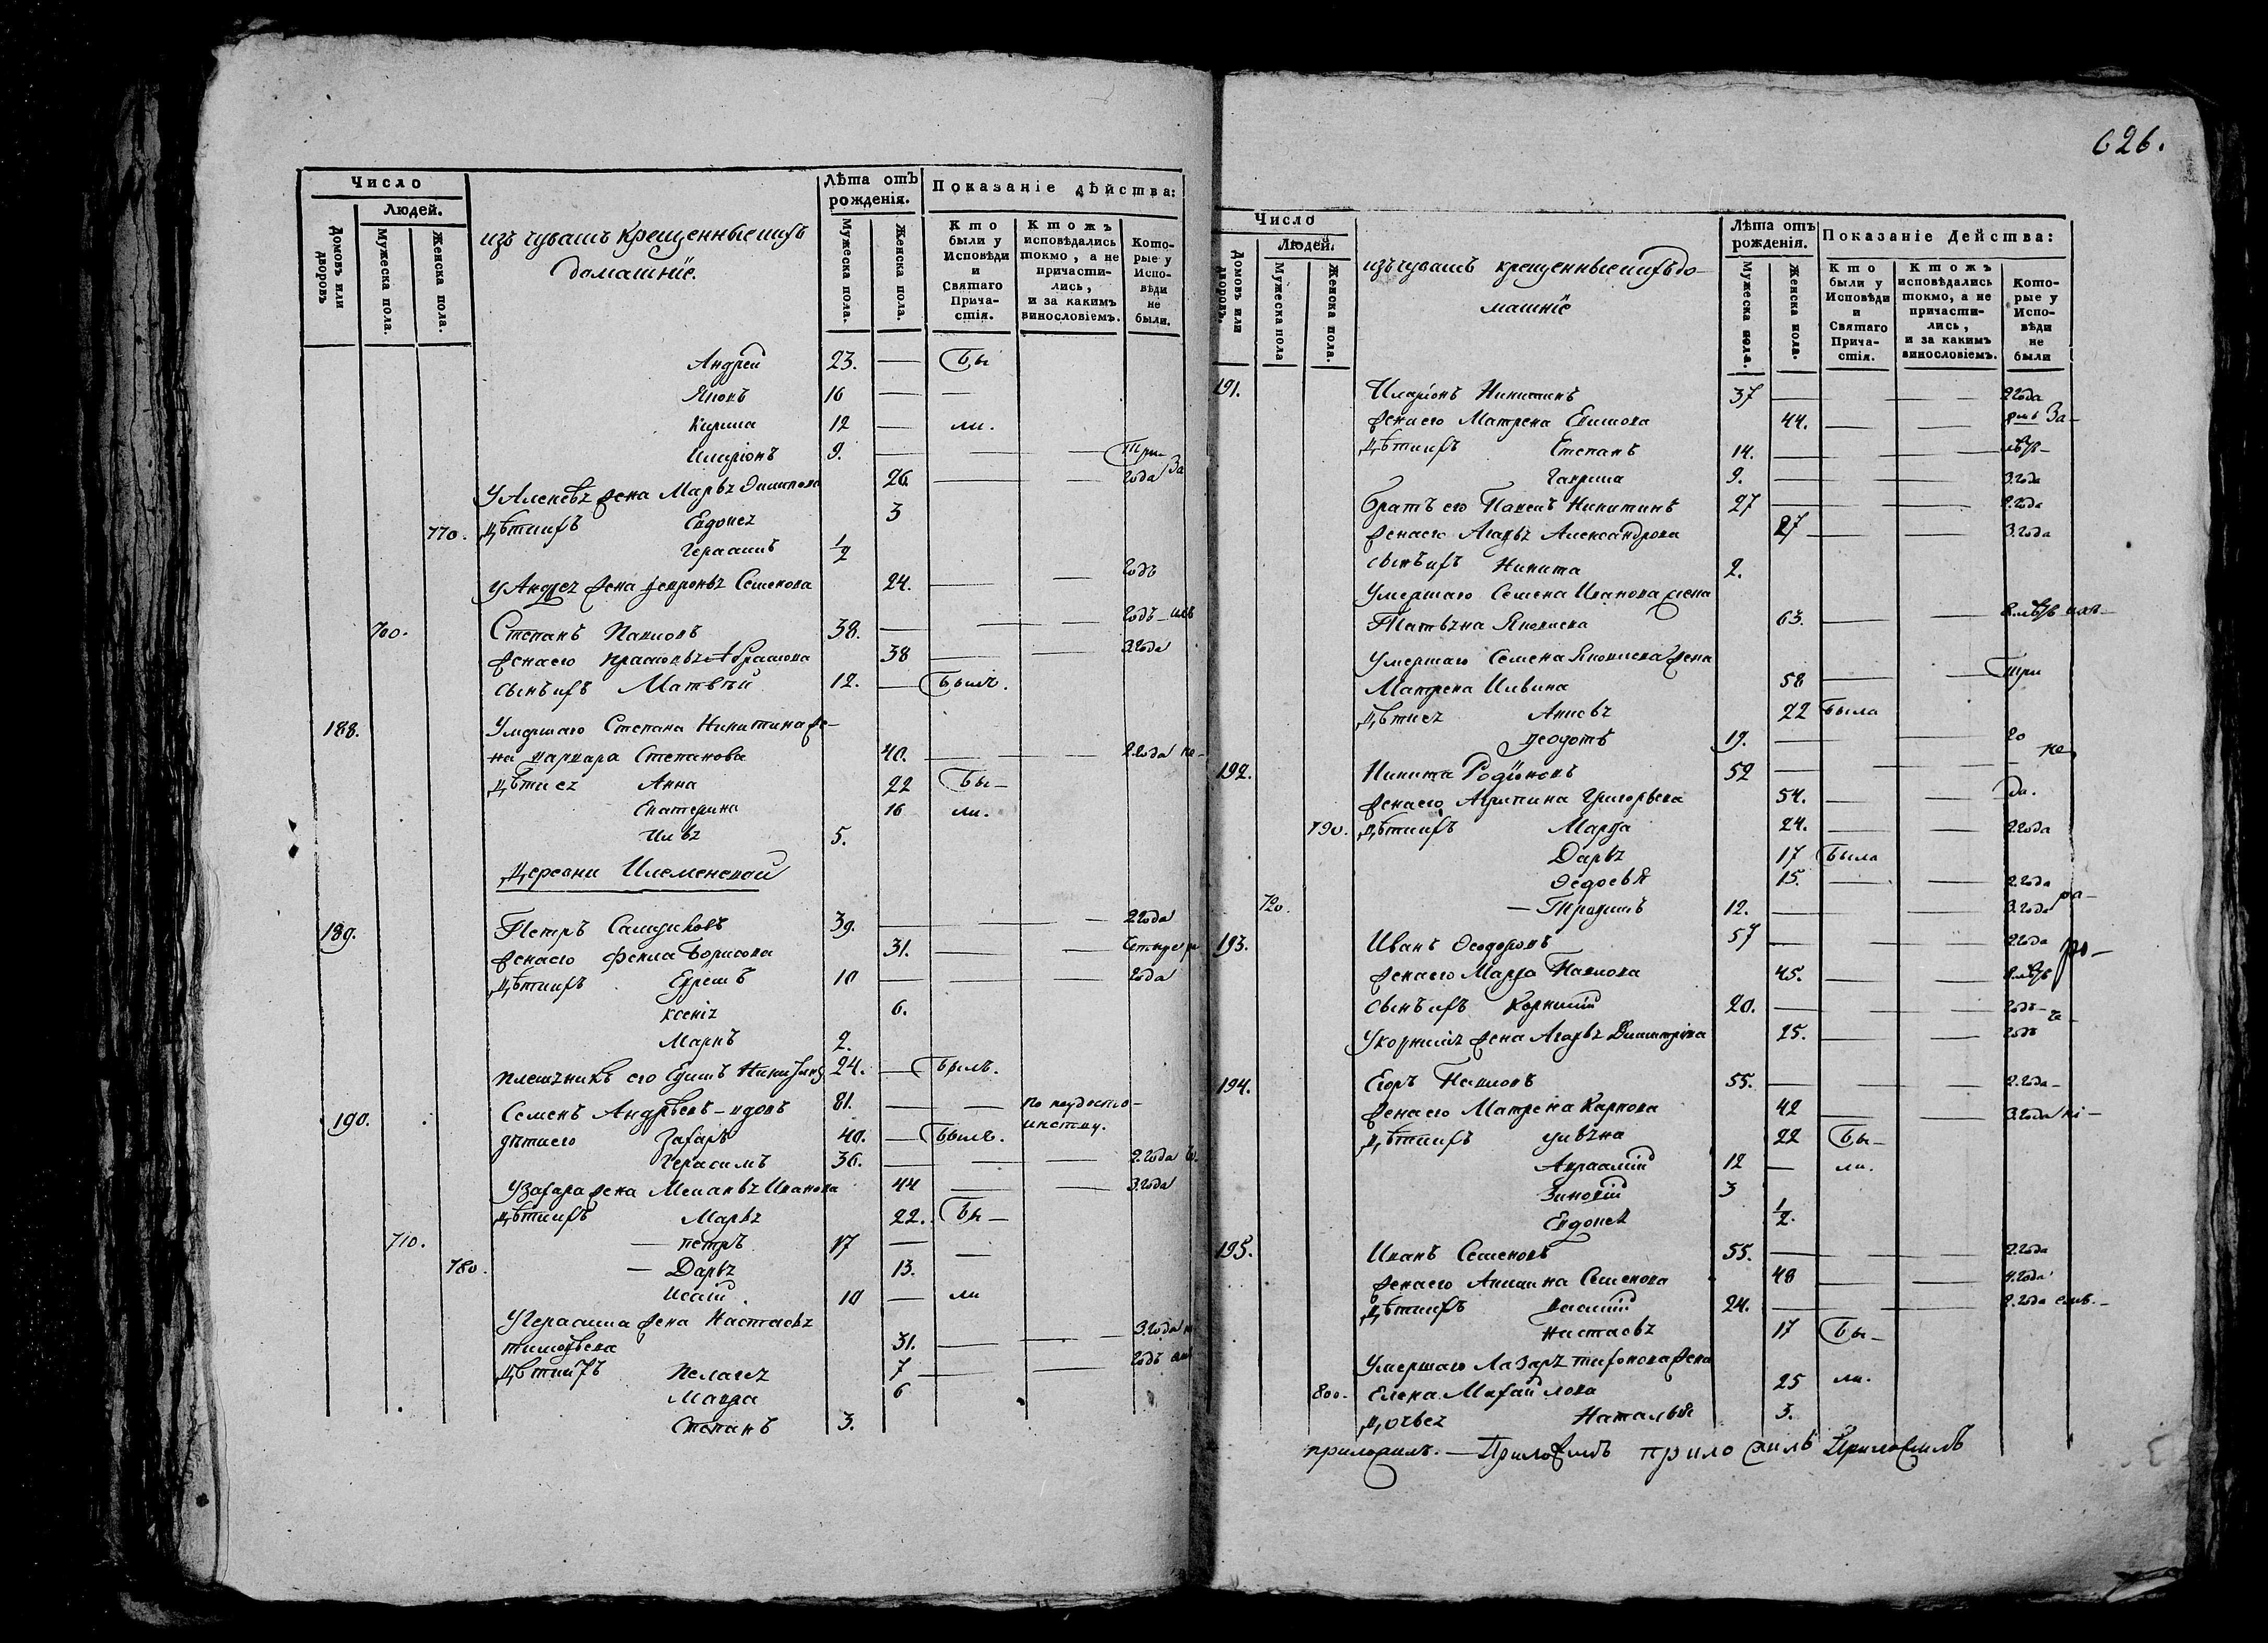 Число
Людей.
Домовъ или дворовъ
Мужеска пола.
Женска пола.
изъ чувашъ крещенные ихъ
домашнiе.
Лѣта отъ рожденiя.
Мужеска пола.
Женска пола.
Показанiе дѣйства:
Кто были у Исповѣди и Святаго Прича-стiя.
Ктожъ исповѣдались токмо, а не причасти-лись, и за какимъ винословiемъ.
Кото-рые у Испо-вѣди не были.
Андрей 23. — Бы
Яковъ 16 — —
Кирила 12 — ли.
Иларiонъ 9. — — — Три
У Алексѣя жена Марья Филипова 26. — — года За
770. Дѣти ихъ Евдокея 3
Герасимъ 1/2
У Андрея жена Февронья Семенова 24. — — годъ
700. Степанъ Павловъ 38. — — — годъ
жена его Абрамова 38 — — 3 года
сынъ ихъ Матвѣй 12. — Былъ.
188. Умершаго Степана Никитина же-
на Варвара Степанова 40. — — — 2 года
Дѣти ея Анна 22 Бы—
Екатерина 16 ли.
Илья 5.
Деревни Илеменской
189. Петръ Самуиловъ 39. — — — 2 года
жена его Фекла Борисова 31. — — четыре
Дѣти ихъ Ефремъ 10 — — — года
Ксенiя 6.
Маркъ 2.
племянникъ его Ефимъ 24. — Былъ.
190. Семенъ Андрѣевъ — вдовъ 81. — — по недосто-
инству.
дѣти его Захаръ 40. — Былъ.
Герасимъ 36. — — — 2. года
У Захара жена Меланья Иванова 44 — — 3. года
Дѣти ихъ Марья 22. Бы—
710. — Петръ 17 — —
780. — Дарья 13.
Исаiй 10 — ли
У Герасима жена Настасья
тимофѣева 31. — — 3. года
Дѣти ихъ Пелагея 7 — — годъ
Мавра 6
Степанъ 3.
626.
Число
Людей.
Домовъ или дворовъ.
Мужеска пола
Женска пола.
изъ чувашъ крещенные ихъ до-
машнiе
Лѣта отъ рожденiя.
Мужеска пола.
Женска пола.
Показанiе Действа:
Кто были у Исповѣди и Святаго Прича-стiя.
Ктожъ исповѣдались токмо, а не причасти-лись, и за какимъ винословiемъ.
Кото-рые у Испо-вѣди не были
191. Иларiонъ Никитинъ 37 — — — 2 года
жена его Матрена Ефимова 44. — — За—
Дѣти ихъ Степанъ 14. — —
Гаврила 9. — — 3. года
братъ его Павелъ Никитинъ 27 — — 2. года
жена его Агафья Александрова 27 — — 3. года
сынъ ихъ Никита 2.
Умершаго Семена Иванова жена
Татьяна Яковлева 63. — —
Умершаго Семена Яковлева жена
Матрена Ильина 58 — — три
Дѣти ея 22 Была
Ѳеодотъ 19. — — го
192. Никита Родiоновъ 52 — — — не
жена его Агрипина Григорьева 54. — — да.
790. Дѣти ихъ Марфа 24. — — 2. года
Дарья 17 Была
Ѳедосья 15. — — 2. года
720. — Трофимъ 12. — — 3. года ра—
193. Иванъ Ѳеодоровъ 57 — — 2. года
жена его Марфа Павлова 45. — —
сынъ ихъ Корнилiй 20. — — годъ
У Корнилiя жена Агафья Димитрiева 25. — — годъ
194. Егоръ Павловъ 55. — — — 2. года —
жена его Матрена Карпова 42 — — 3. года нi—
Дѣти ихъ Ульяна 22 Бы—
Авраамiй 12 — ли.
Зиновiй 3
Евдокея 1/2.
195. Иванъ Семеновъ 55. — — 2. года
жена его Акилина Семенова 48 — — 4. года
Дѣти ихъ Василiй 24. — — 2. года емъ. —
Настасья 17 Бы—
Умершаго Лазаря тихонова жена
800. Елена Михайлова 25 ли.
Дочь ея Наталья 3.
приложилъ. — Приложилъ приложилъ Приложилъ